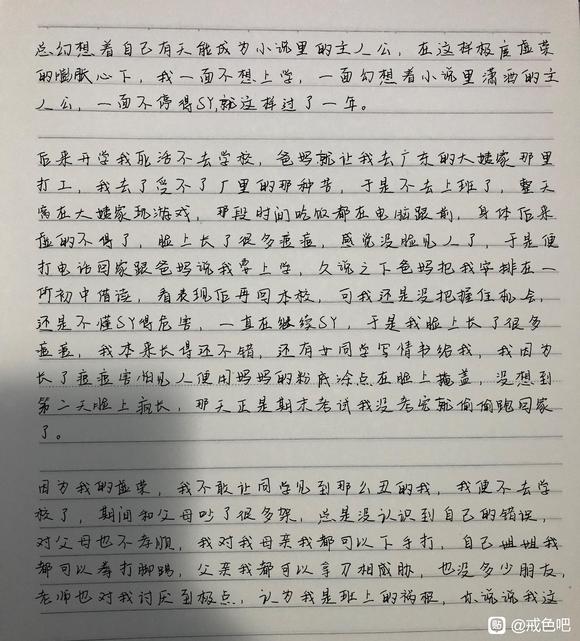 总幻想着自己有天能成为小说里的主人公，在这样极度虚荣
的膨胀心下，我一面不想上学，一面幻想着小说里潇洒的主
人公，一面不停得SY,就这样过了一年。
后来开学我死活不去学校，爸妈就让我去广东的大姨家那里
打工，我去了受不了厂里的那种苦，于是不去上班了，整天
窝在大姨家玩游戏，那段时间吃饭都在电脑跟前，身体后来
虚的不得了，脸上长了很多痘痘，感觉没脸见人了，于是便
打电话回家跟爸妈说我要上学，久说之下爸妈把我安排在一
所初中借读，看表现后再回本校，可我还是没把握住机会，
还是不懂SY得危害，一直在继续SY，于是我脸上长了很多
痘痘，我本来长得还不错，还有女同学写情书给我，我因为
长了痘痘害怕见人便用妈妈的粉底涂点在脸上掩盖，没想到
第二天脸上疯长，那天正是期末考试我没考完就偷偷跑回家
了。
因为我的虚荣，我不敢让同学见到那么丑的我，我便不去学
校了，期间和父母吵了很多架，总是没认识到自己的错误，
对父母也不孝顺，我对我母亲我都可以下手打，自己姐姐我
都可以拳打脚踢，父亲我都可以拿刀相威胁，也没多少朋友，
老师也对我讨厌到极点，认为我是班上的祸根，你说说我这
贴 @戒色吧